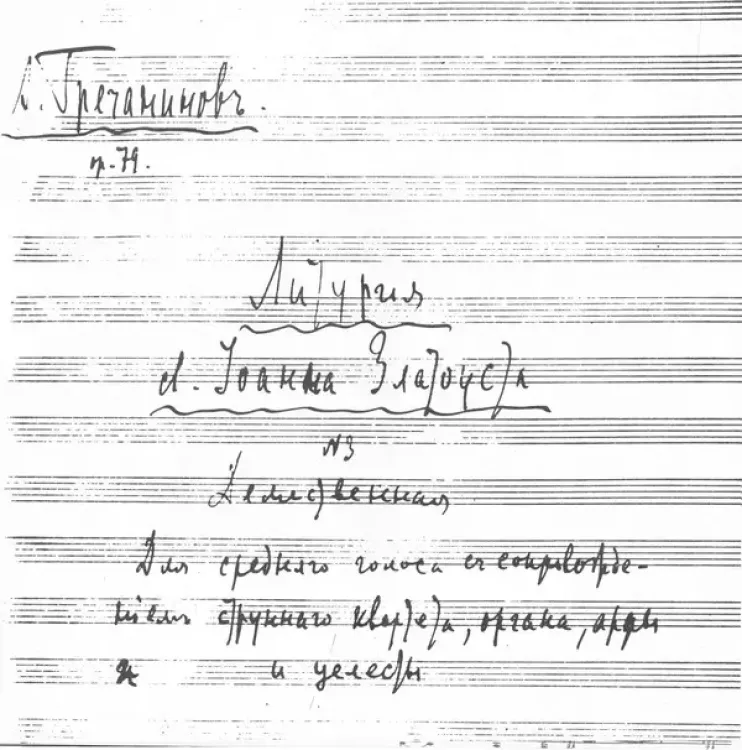 А. Гречаниновъ.
ор. 79.
Литургия
св. Іоанна Златоуста
№3
Демественная
Для средняго голоса съ сопровожде-
ніемъ струннаго квартета, органа, арфы
и целесты